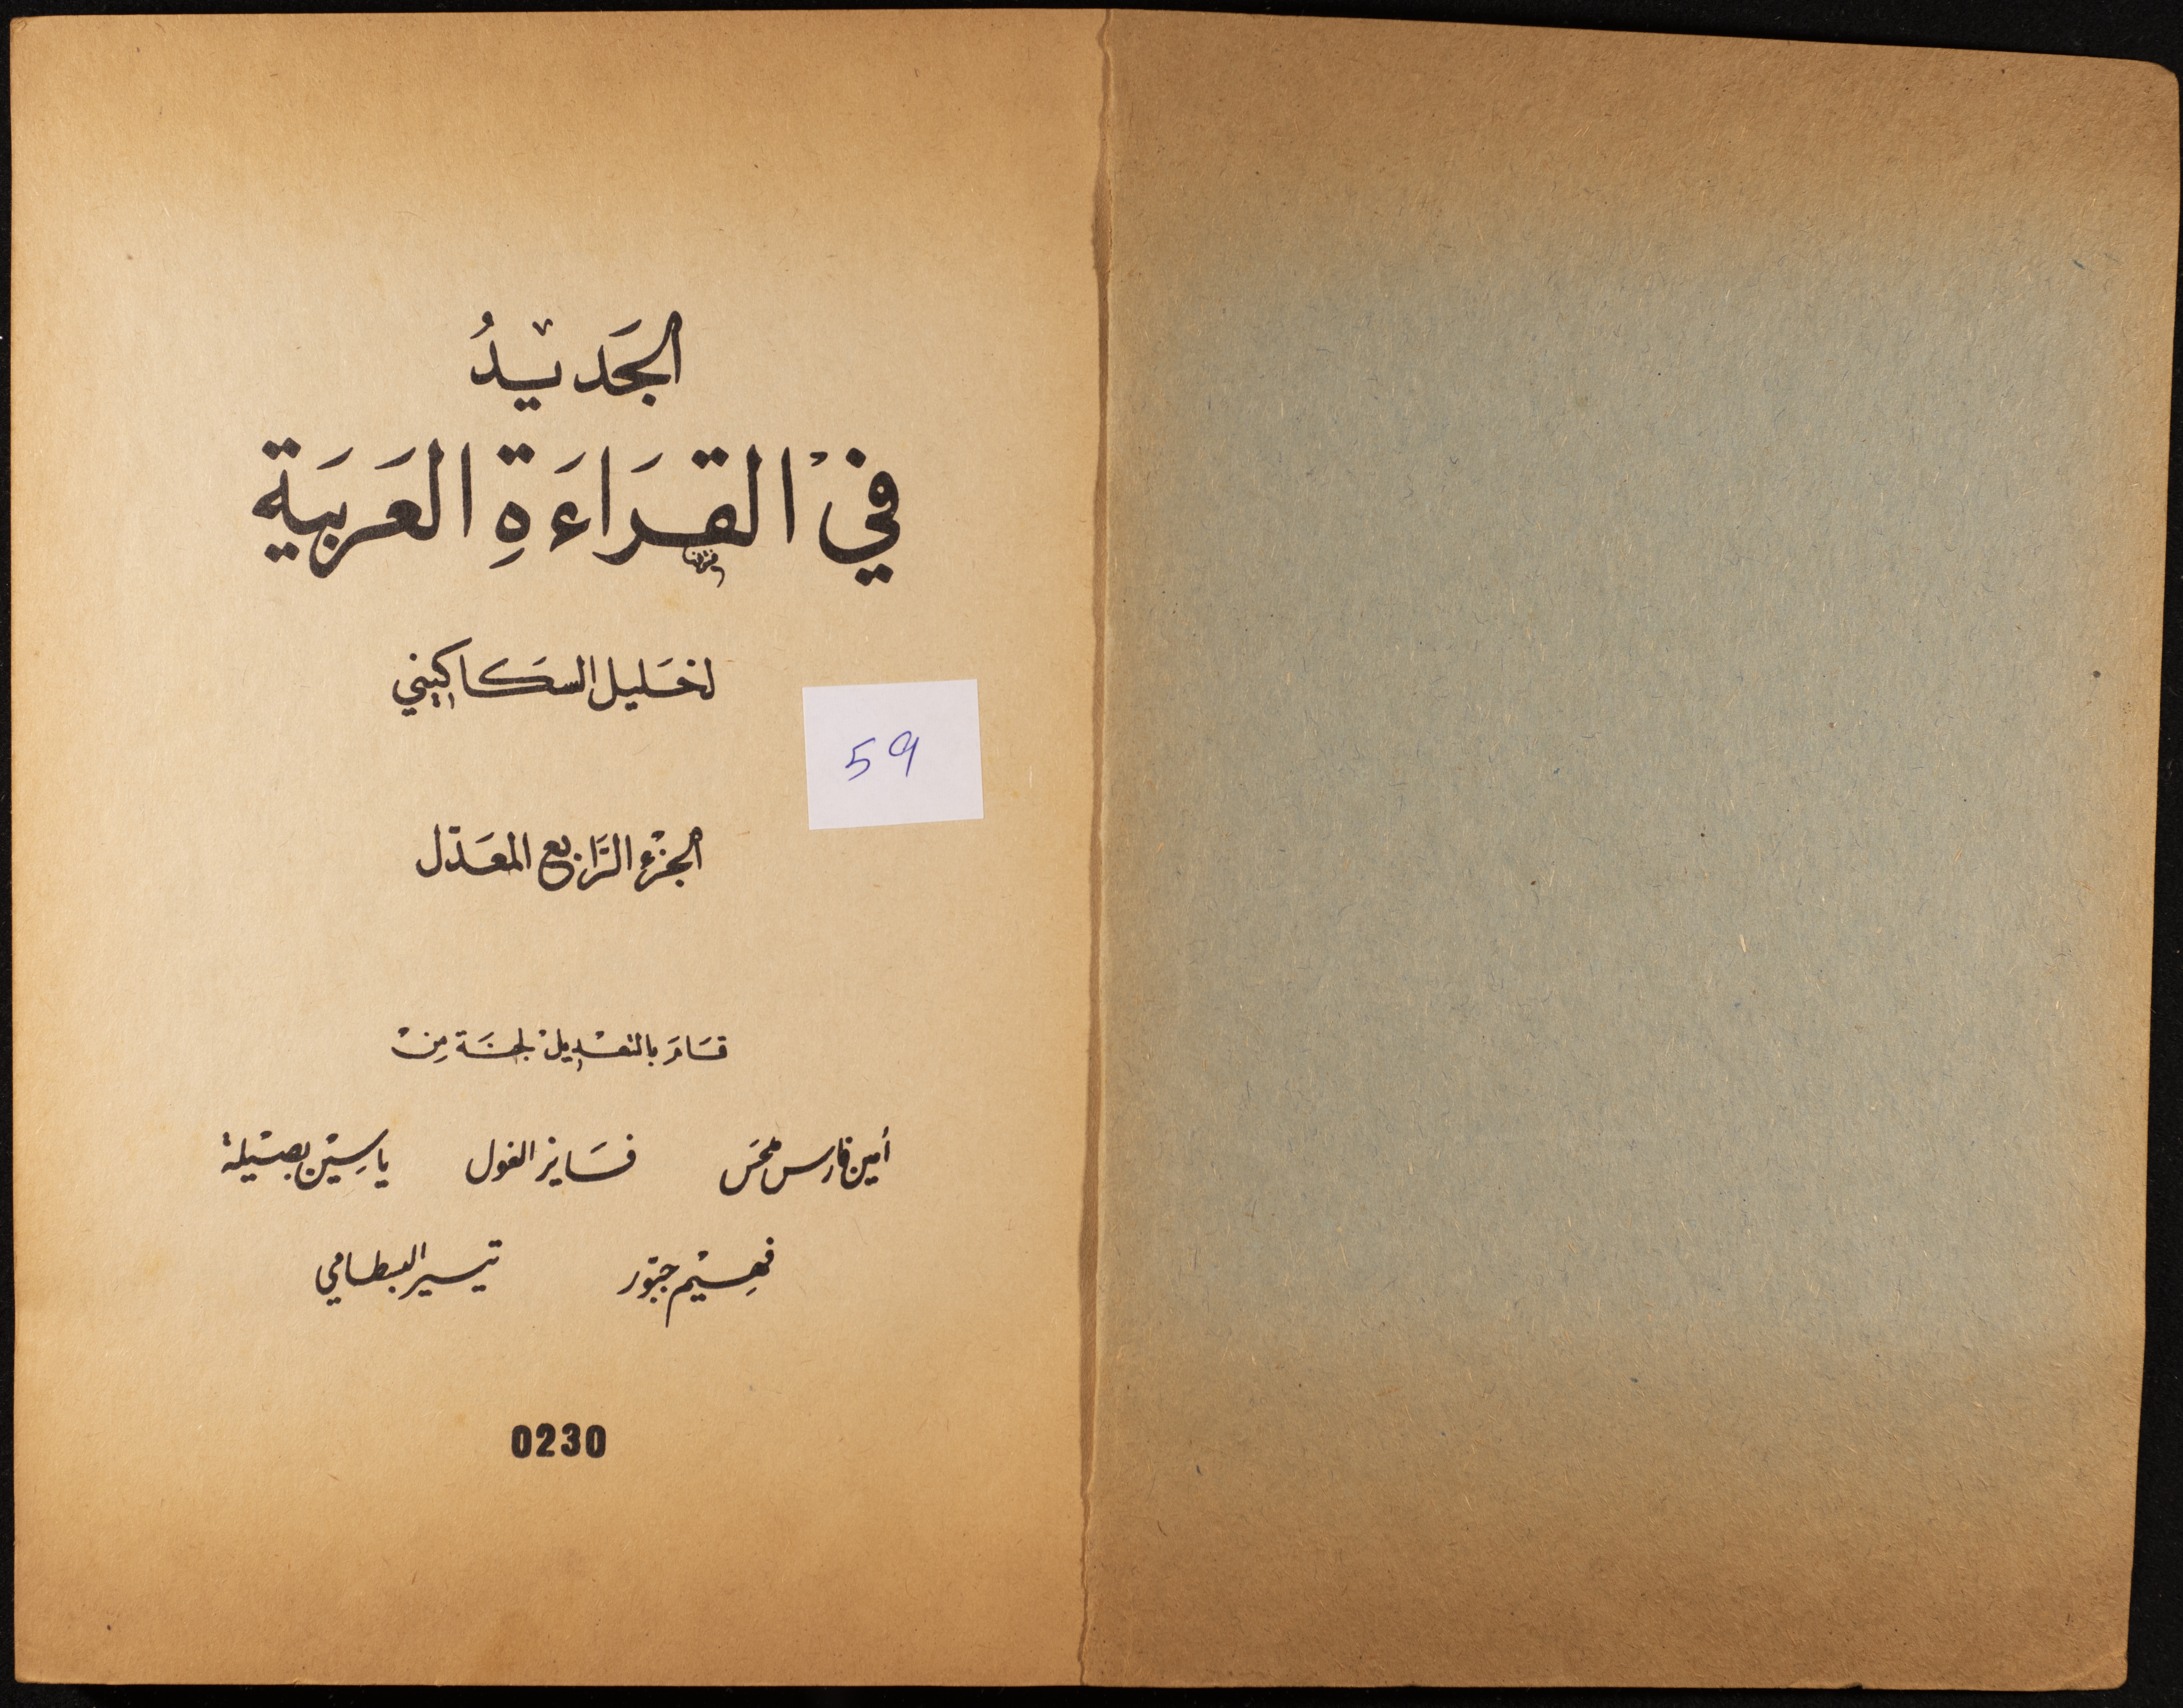 الجَديْدُ
فيْ القِرَاءَةِ العَرَبيَة
لخَليل السَكاكيني
59
الجزْء الرَّابع المعَدّل
قَامَ بالتعْديلْ لجنَة مِنْ
أمين فارس ملحَس فَايز الغول ياسِيْن بصيْلة
فهِيْم جبّور تيسير البسطامي
0230